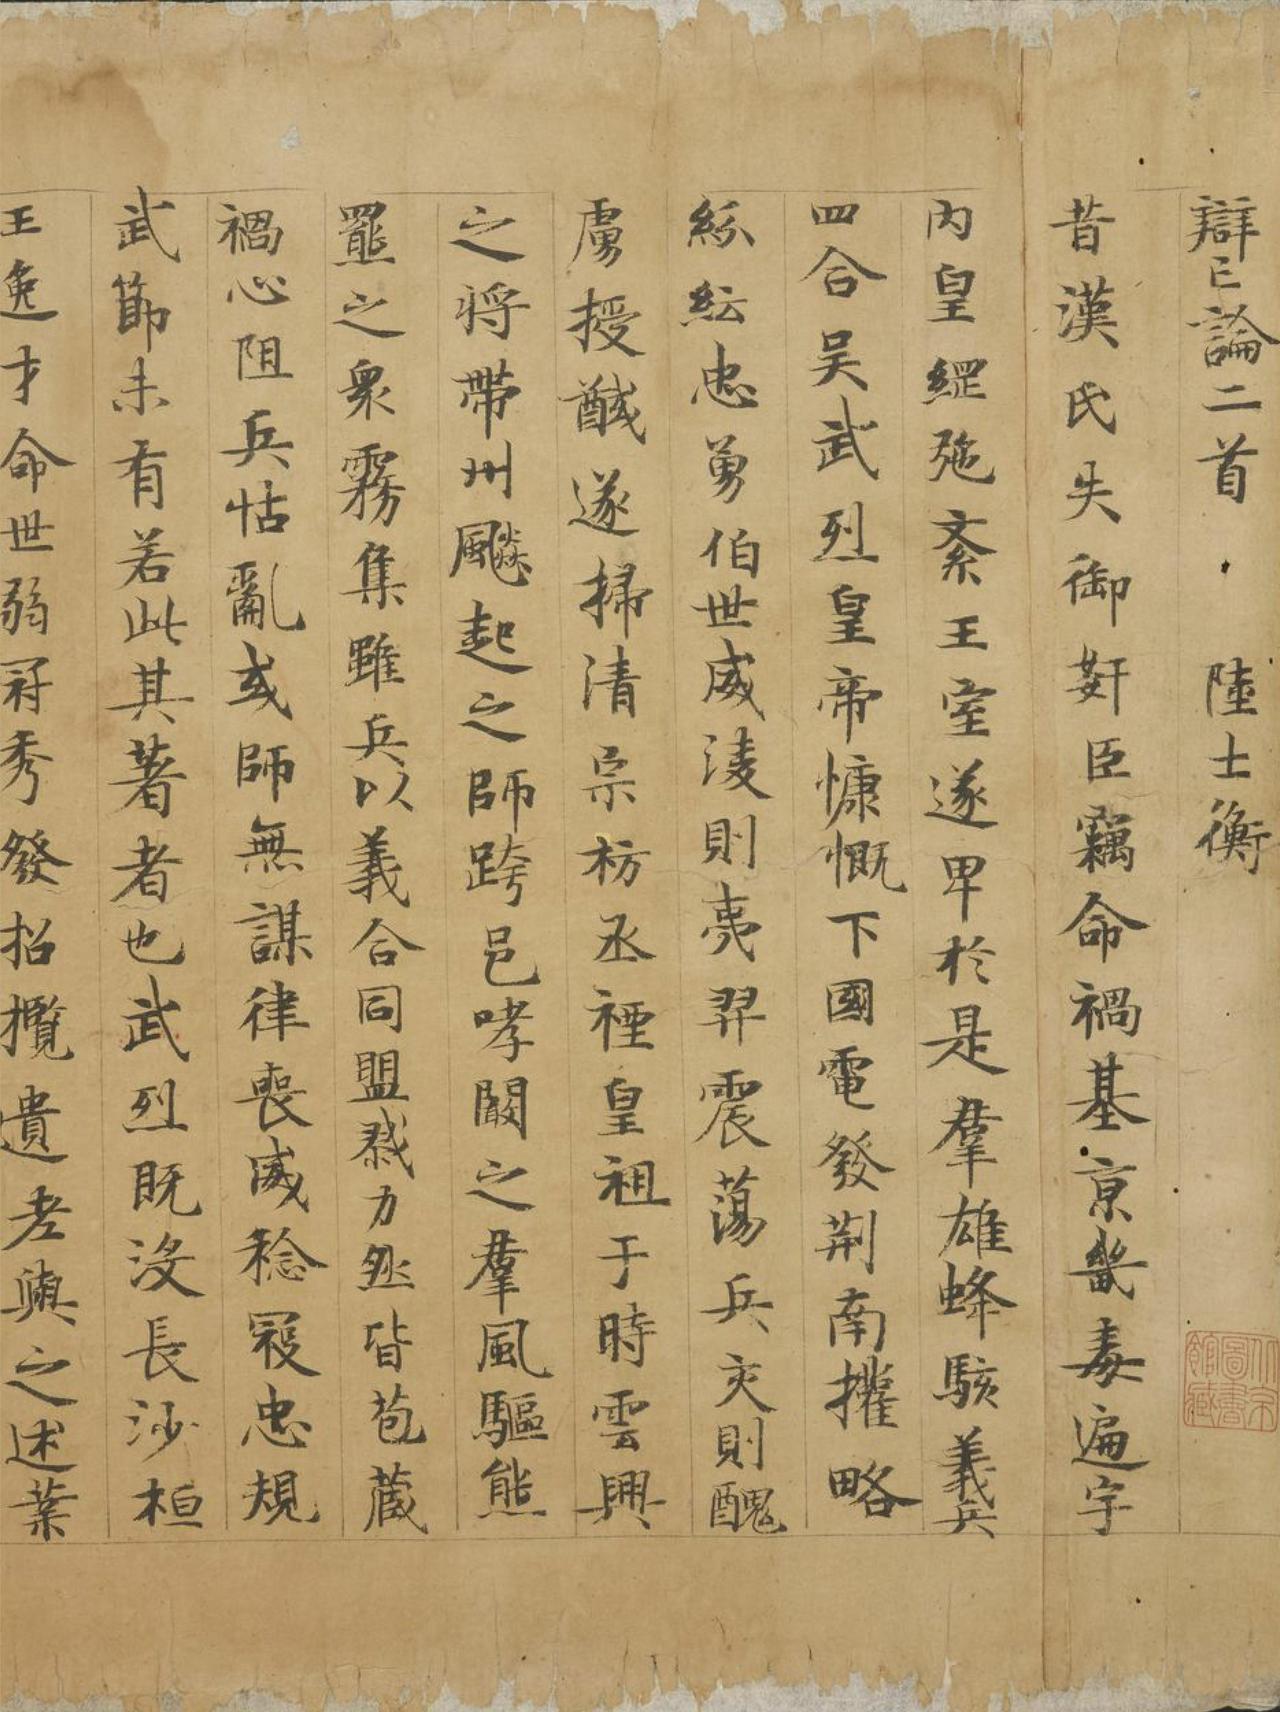 辯亡論二首　陸士衡
昔漢氏失御奸臣竊命禍基京畿毒遍宇
內皇綱弛紊王室遂卑於是羣雄蜂駭義兵
四合吴武烈皇帝慷慨下國電發荆南攉略
紛紜忠勇伯世威淩則夷羿震蕩兵交則醜
虜授馘遂掃清宗枋丞禋皇祖于時雲興
之將帶州飈起之師跨邑哮闞之羣風驅熊
羆之衆霧集雖兵以義合同盟勠力然皆苞藏
禍心阻兵怙亂或師無謀律喪威稔寇忠規
武節未有若此其著者也武烈既没長沙桓
王逸才命世弱冠秀發招攬遺老與之述業
北京圖書館藏